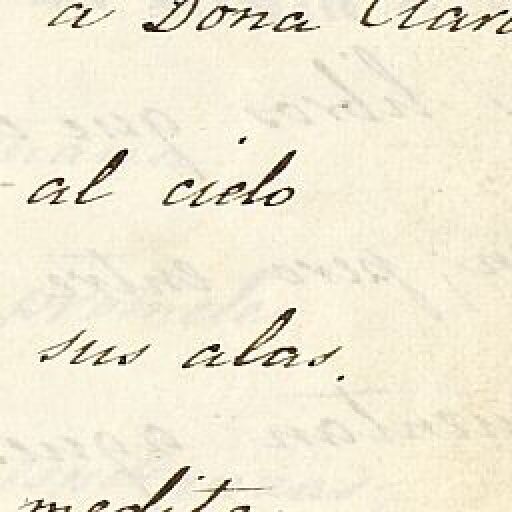 a Dona Clara
al cielo
sus alas.
medita